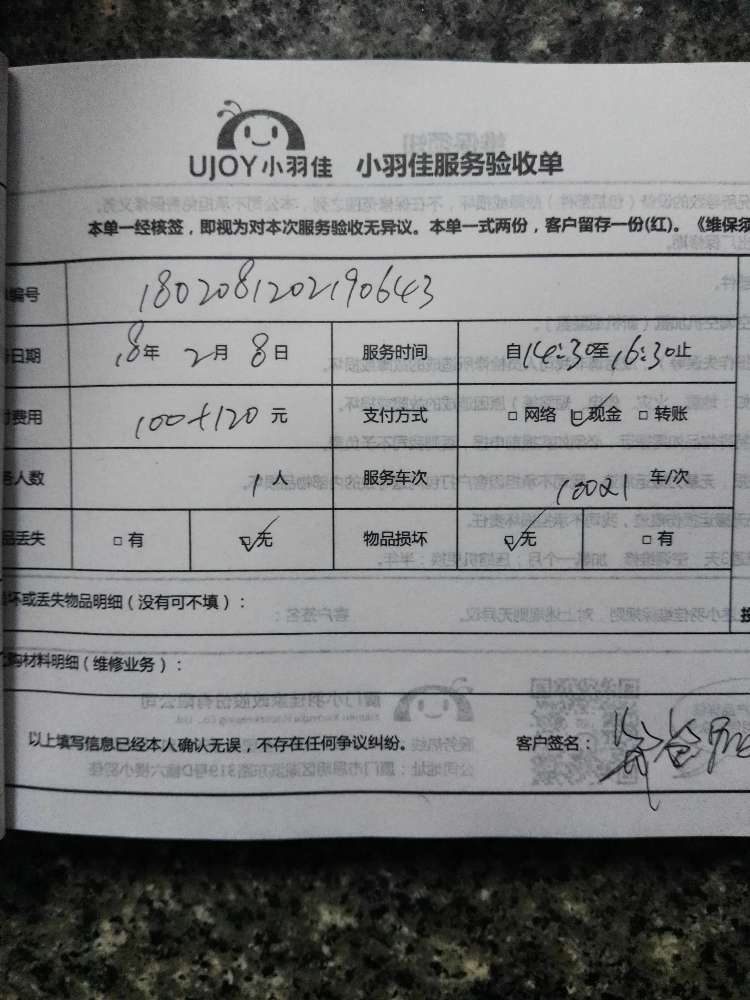 UJOY小羽佳 小羽佳服务验收单
本单一经核签，即视为对本次服务验收无异议。本单一式两份，客户留存一份(红)。《维保须
编号 1802081202190643
日期 18年 2月 8日 服务时间 自14:30至16:30止
费用 100+120元 支付方式 □网络 □现金 □转账
人数 1人 服务车次 10021 车/次
品丢失 □有 □无 物品损坏 □无 □有
坏或丢失物品明细（没有可不填）：
购材料明细（维修业务）：
以上填写信息已经本人确认无误，不存在任何争议纠纷。 客户签名：